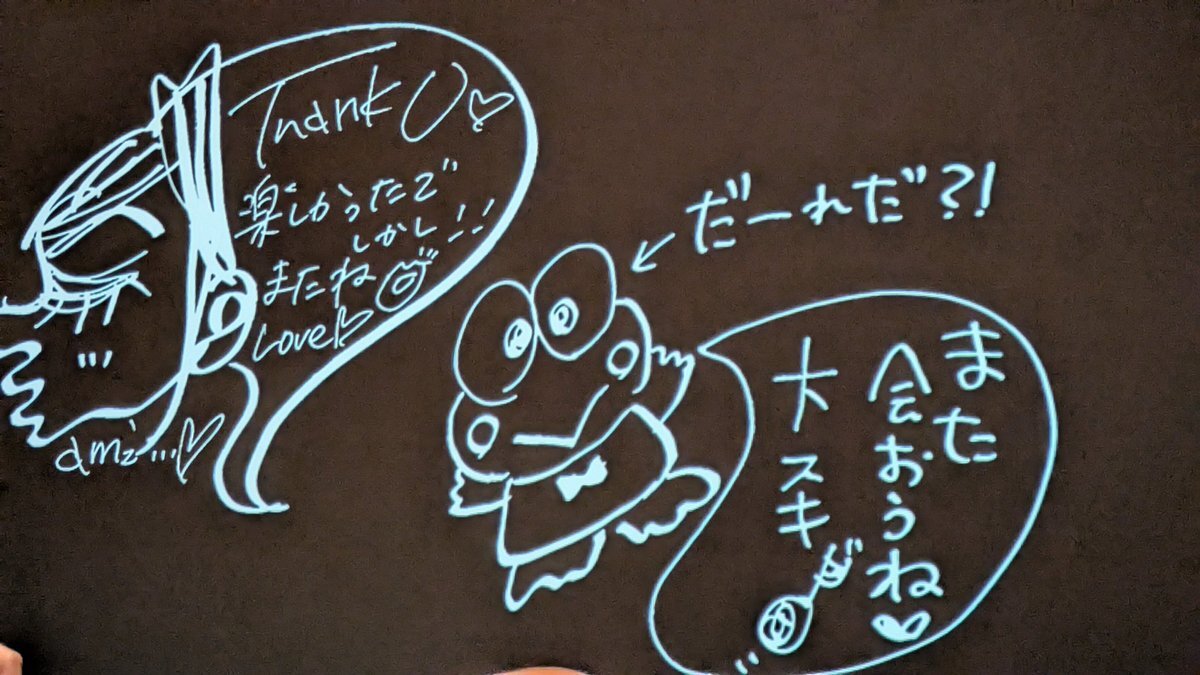 Thank U♡
楽しかったで
しかし!!
またね
Love♡
ami...♡
だーれだ?!
また
会おうね♥
大スキ